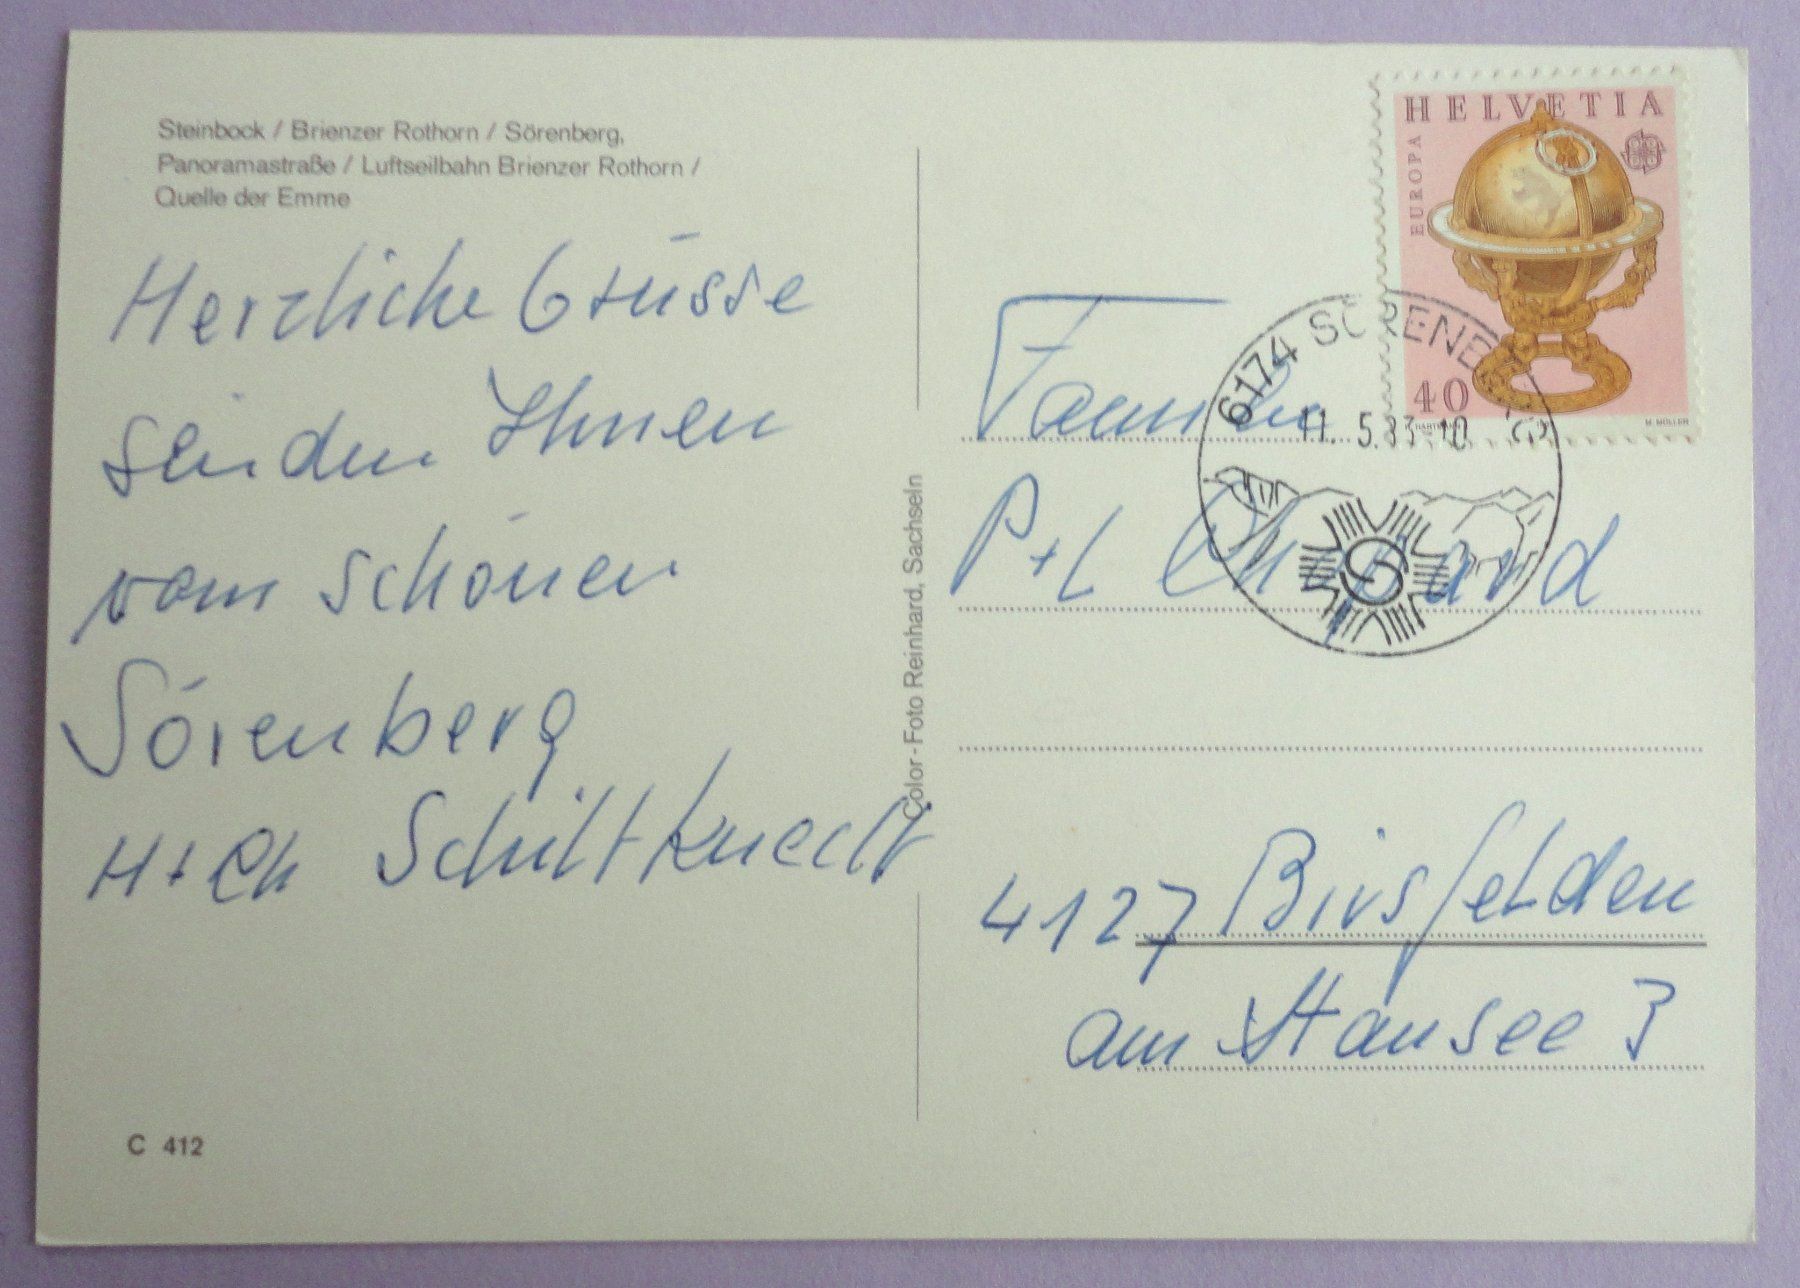 Steinbock / Brienzer Rothorn / Sörenberg,
Panoramastraße / Luftseilbahn Brienzer Rothorn /
Quelle der Emme
Herzliche Grüsse
senden Ihnen
vom schönen
Sörenberg
H+Ch Schiltknecht
C 412
Color-Foto Reinhard, Sachseln
HELVETIA
EUROPA
40
M. MÜLLER
6174 SÖRENBERG
11. 5.83-10
Familie
P+L
4127 Birsfelden
am Stausee 3